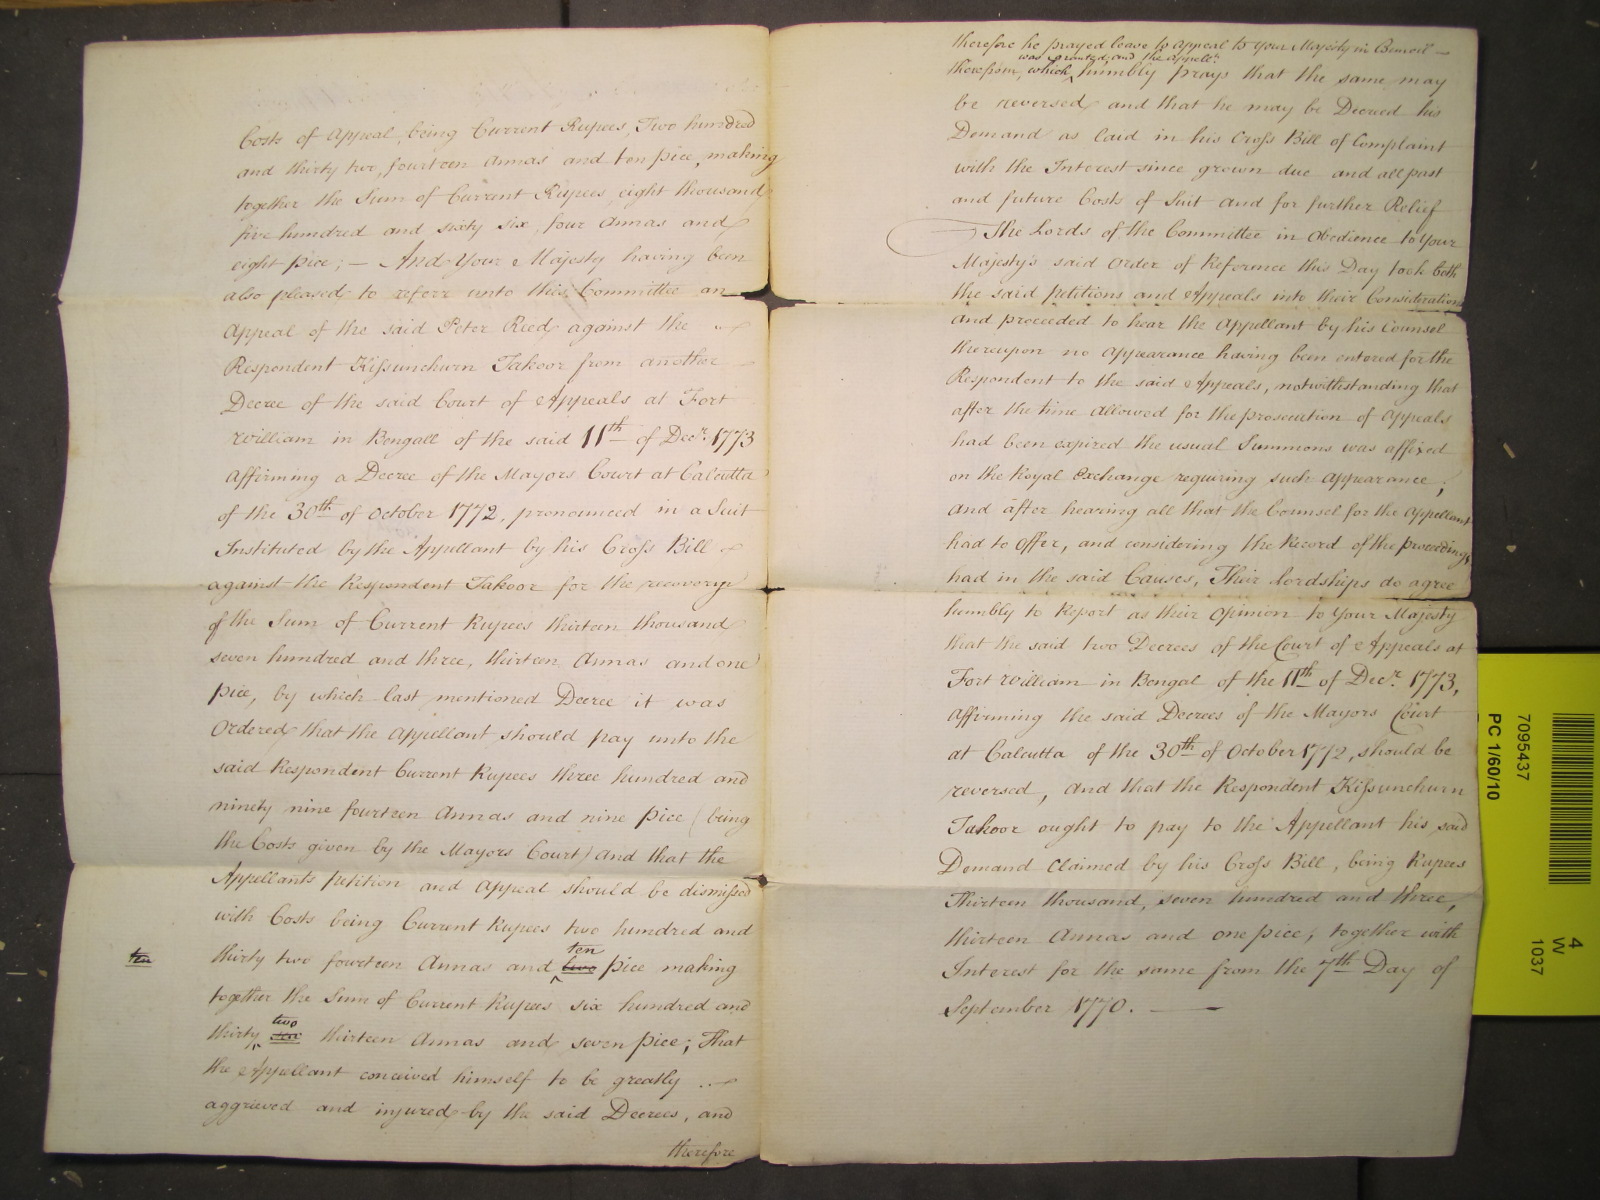 Costs of Appeal, being Current Rupees, Two hundred
and thirty two, fourteen Annas and ten pice, making
together the Sum of Current Rupees, eight thousand
five hundred and sixty six, four Annas and
eight pice; — And Your Majesty having been
also pleased to referr unto this Committee an
Appeal of the said Peter Reed against the
Respondent Kissunchurn Takoor from another
Decree of the said Court of Appeals at Fort
William in Bengall of the said 11th of Decr. 1773
Affirming a Decree of the Mayors Court at Calcutta
of the 30th of October 1772, pronounced in a Suit
Instituted by the Appellant by his Cross Bill
against the Respondent Takoor for the recovery
of the Sum of Current Rupees thirteen thousand
seven hundred and three, thirteen Annas and one
pice, by which last mentioned Decree it was
Ordered that the Appellant should pay unto the
said Respondent Current Rupees three hundred and
ninety nine fourteen Annas and nine pice (being
the Costs given by the Mayors Court) and that the
Appellants petition and Appeal should be dismissed
with Costs being Current Rupees two hundred and
ten
ten
thirty two fourteen Annas and two pice making
together the Sum of Current Rupees six hundred and
two
thirty thirteen Annas and seven pice; That
the Appellant conceived himself to be greatly
aggrieved and injured by the said Decrees, and
therefore
therefore he prayed leave to Appeal to Your Majesty in Council —
was granted, and the Appellt.
therefrom, which humbly prays that the same may
be reversed and that he may be Decreed his
Demand as laid in his Cross Bill of Complaint
with the Interest since grown due and all past
and future Costs of Suit and for further Relief
The Lords of the Committee in Obedience to Your
Majesty's said Order of Reference this Day took both
the said petitions and Appeals into their Consideration
and proceeded to hear the Appellant by his Counsel
thereupon no Appearance having been entered for the
Respondent to the said Appeals, notwithstanding that
after the time allowed for the prosecution of Appeals
had been expired the usual Summons was affixed
on the Royal Exchange requiring such Appearance;
And after hearing all that the Counsel for the Appellant
had to Offer, and considering the Record of the proceedings
had in the said Causes, Their Lordships do agree
humbly to Report as their Opinion to Your Majesty
that the said two Decrees of the Court of Appeals at
Fort William in Bengal of the 11th of Decr. 1773,
Affirming the said Decrees of the Mayors Court
at Calcutta of the 30th of October 1772, should be
reversed, and that the Respondent Kissunchurn
Takoor ought to pay to the Appellant his said
Demand Claimed by his Cross Bill, being Rupees
Thirteen thousand, seven hundred and three,
thirteen Annas and one pice; together with
Interest for the same from the 7th Day of
September 1770. —
7095437
PC 1/60/10
4
W
1037